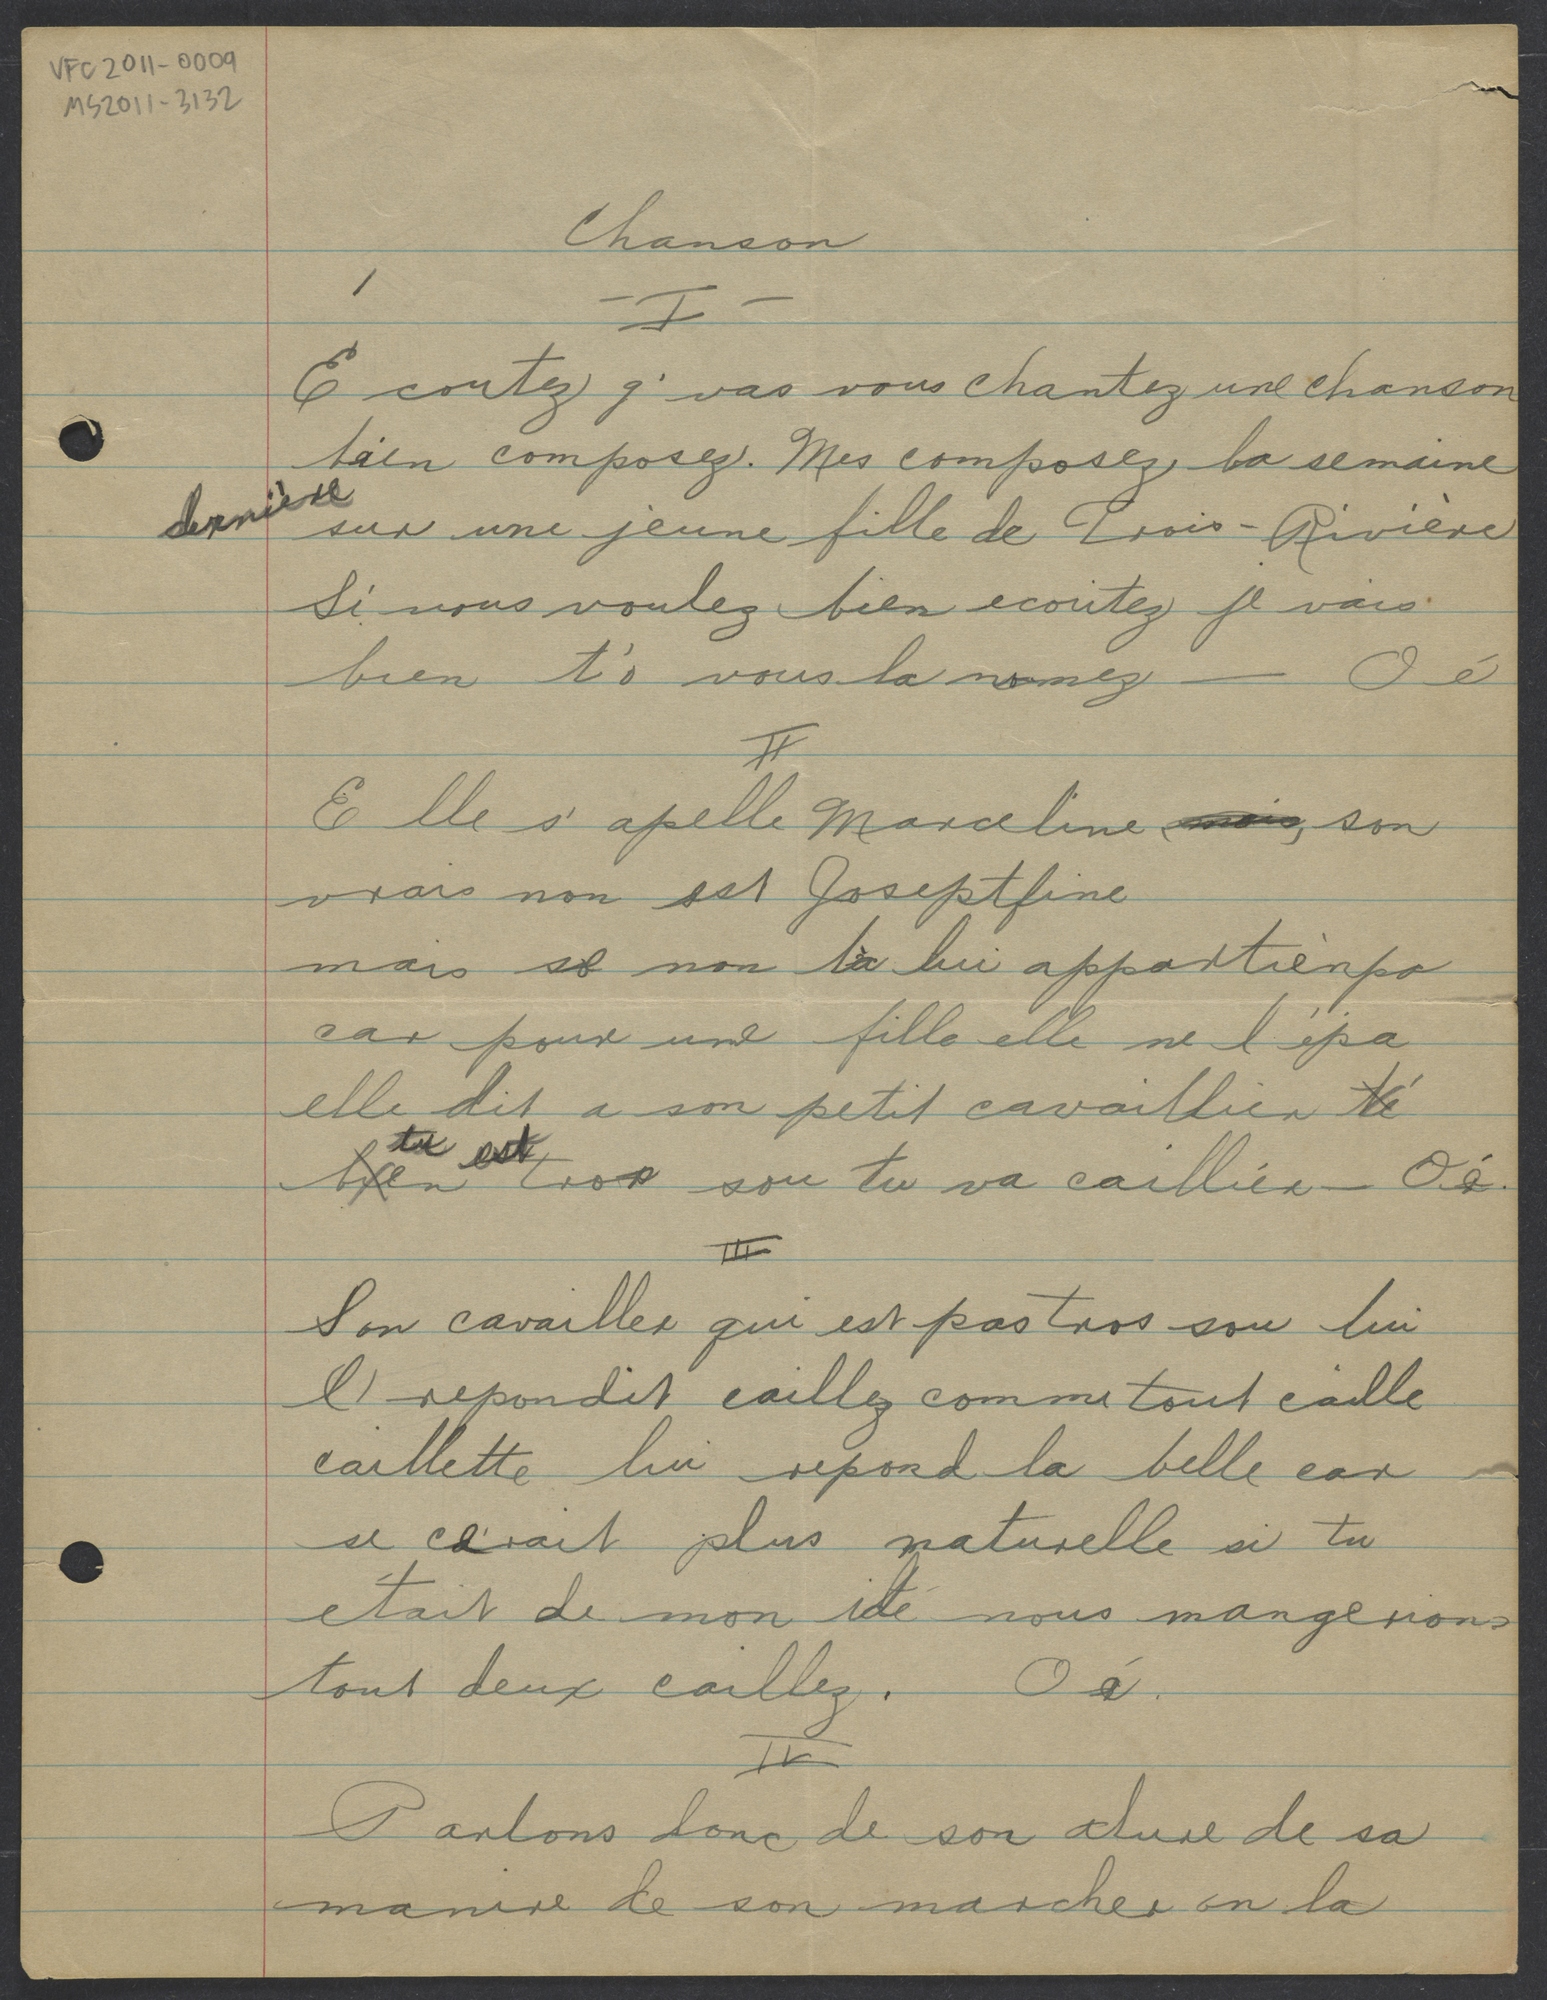 VFC 2011-0009
MS2011-3132
Chanson
- I -
E coutez j' vas vous chantez une chanson
bien composez. Mes composez la semaine
dernière sur une jeune fille de Trois-Rivière
Si vous voulez bien ecoutez je vais
bien t'o vous la nomez — O é
II
E lle s' apelle Marceline mais, son
vrais non est Joseptfine
mais se non là lui appartiènpa
car pour une fille elle ne l'épa
elle dit a son petit cavaillier té
tu est
bien tros sou tu va caillier — Oé.
III
Son cavailler qui est pas tros sou lui
l' repondit caillez comme tout caille
caillette lui repond la belle car
se cerait plus naturelle si tu
était de mon idé nous mangerions
tout deux caillez. O é.
IV
Parlons donc de son alure de sa
manire de son marcher on la